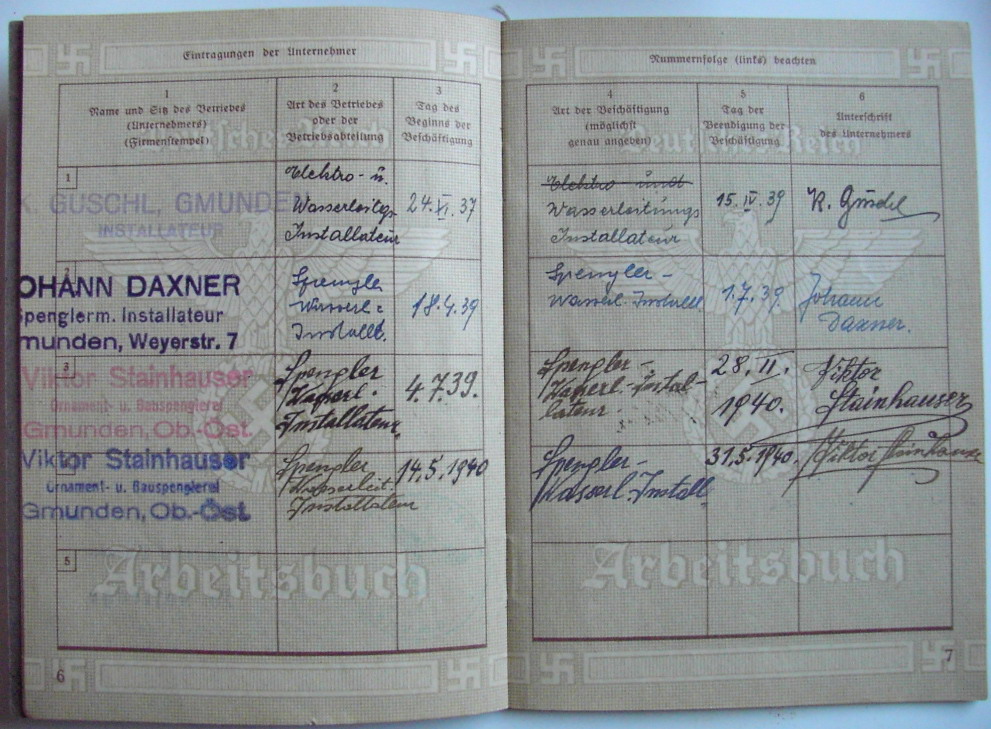 Eintragungen der Unternehmer
1
Name und Sitz des Betriebes
(Unternehmers)
(Firmenstempel)
2
Art des Betriebes
oder der
Betriebsabteilung
3
Tag des
Beginns der
Beschäftigung
1
K. GUSCHL, GMUNDEN
INSTALLATEUR
Elektro- u.
Wasserleitgs
Installateur
24.VI.37
2
OHANN DAXNER
Spenglerm. Installateur
munden, Weyerstr. 7
Spengler
Wasserl.-
Installt.
18.4.39
3
Viktor Stainhauser
Ornament- u. Bauspenglerei
Gmunden, Ob.-Öst.
Spengler
Wasserl.
Installateur
4.7.39.
Viktor Stainhauser
Ornament- u. Bauspenglerei
Gmunden, Ob.-Öst.
Spengler
Wasserleit.
Installateur
14.5.1940
5
Deutsches Reich
Arbeitsbuch
6
Nummernfolge (links) beachten
4
Art der Beschäftigung
(möglichst
genau angeben)
5
Tag der
Beendigung der
Beschäftigung
6
Unterschrift
des Unternehmers
Elektro- und
Wasserleitungs
Installateur
15.IV.39
K. Guschl
Spengler-
Wasserl. Install.
1.7.39.
Johann
Daxner.
Spengler-
Wasserl. Instal-
lateur.
28.II.
1940.
Viktor
Stainhauser
Spengler-
Wasserl. Install
31.5.1940.
Viktor Stainhauser
Deutsches Reich
Arbeitsbuch
7